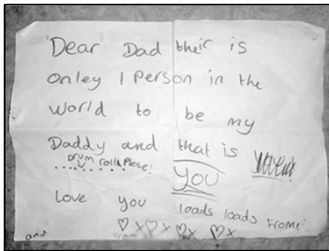 Dear Dad their is
onley 1 Person in the
world to be my
Daddy and that is
Drum roll Please!
YOU
Love you loads loads From: